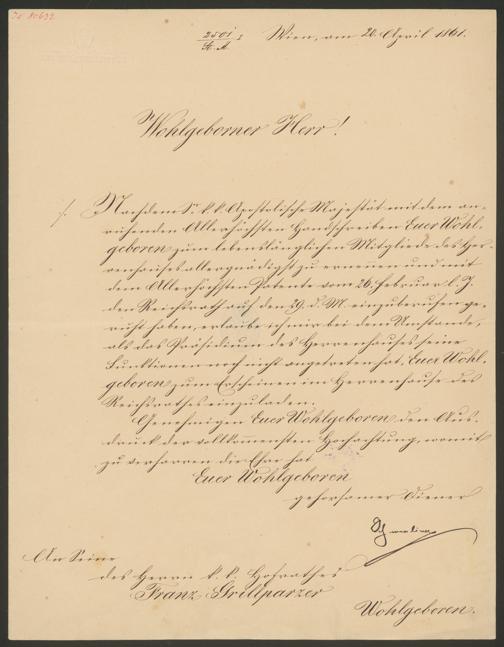 2501/St. M. : Wien, am 26. April 1861.
Wohlgeborner Herr!
Nachdem Se. k. k. Apostolische Majestät mit dem an-
ruhenden Allerhöchsten Handschreiben Euer Wohl-
geboren zum lebenslänglichen Mitgliede des Her-
renhauses allergnädigst zu ernennen und mit
dem Allerhöchsten Patente vom 26. Februar l. J.
den Reichsrath auf den 29. d. M. einzuberufen ge-
ruht haben, erlaube ich mir bei dem Umstande,
als das Präsidium des Herrenhauses seine
Funktionen noch nicht angetreten hat, Euer Wohl-
geboren zum Erscheinen im Herrenhause des
Reichsrathes einzuladen.
Genehmigen Euer Wohlgeboren den Aus-
druck der vollkommensten Hochachtung, womit
zu verharren die Ehre hat
Euer Wohlgeboren
gehorsamer Diener
Schmerling
An Seine
des Herrn k. k. Hofrathes
Franz Grillparzer
Wohlgeboren.